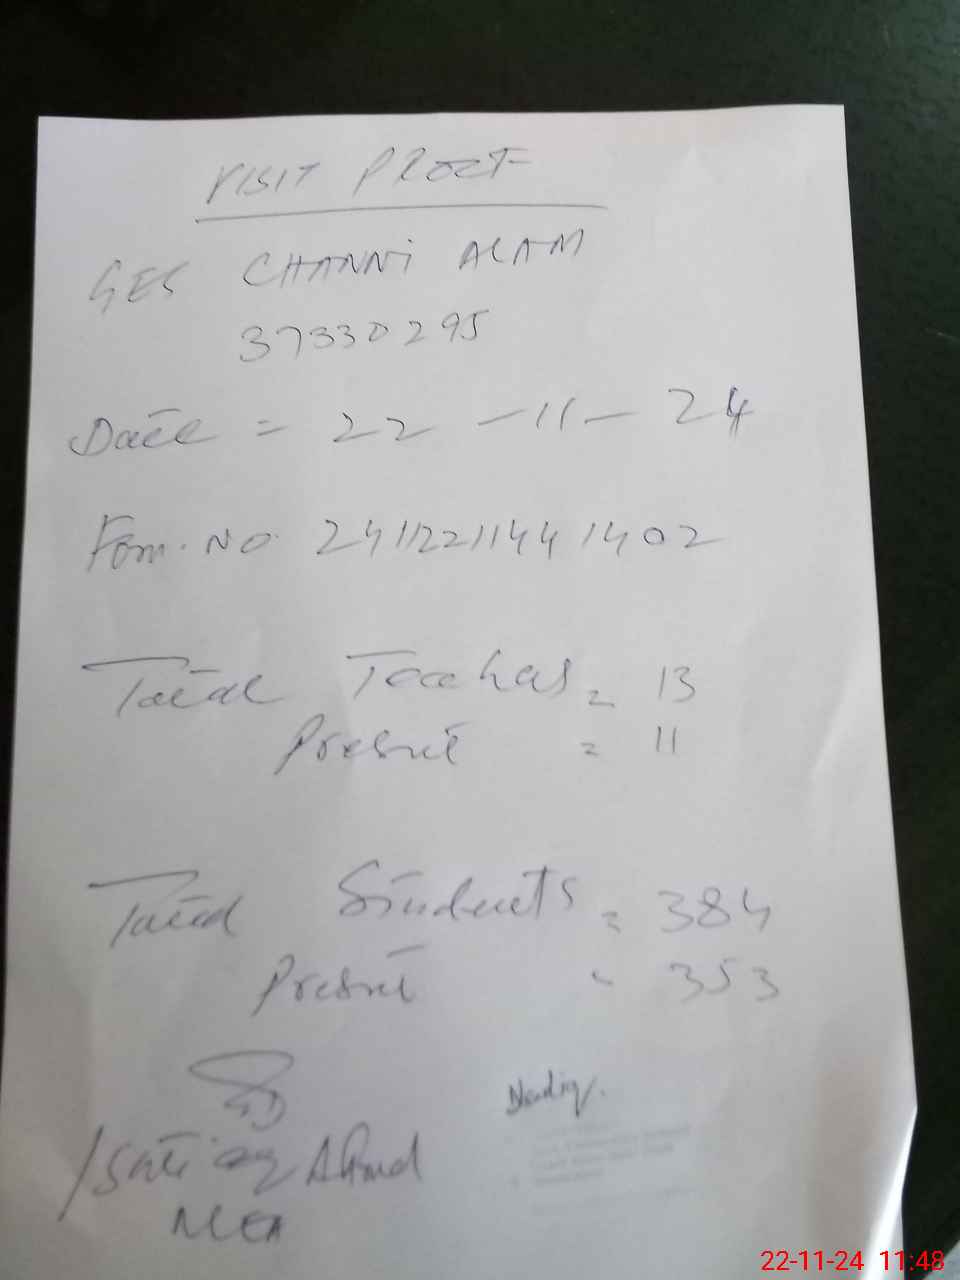 VISIT PROOF
GES CHANNI ALAM
37330295
Date = 22 - 11 - 24
Form. No. 2411221144 1402
Total Teachers = 13
Present = 11
Total Students = 384
Present = 353
Ishtiaq Ahmad
MEA
22-11-24 11:48